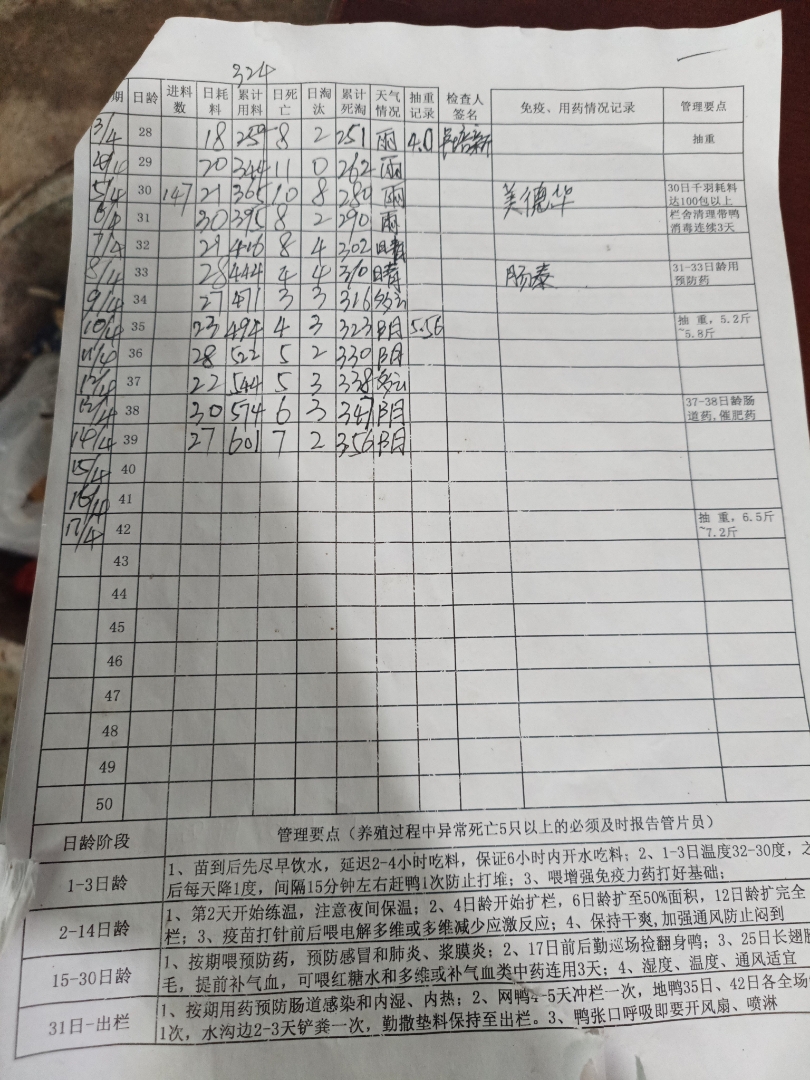 324
期 日龄 进料数 日耗料 累计用料 日死亡 日淘汰 累计死淘 天气情况 抽重记录 检查人签名 免疫、用药情况记录 管理要点
3/4 28 18 8 2 251 雨 4.0 抽重
29 20 344 11 0 262 雨
5/4 30 147 21 365 10 8 280 雨 美德华 30日千羽耗料达100包以上
6/4 31 30 395 8 2 290 雨 栏舍清理带鸭消毒连续3天
7/4 32 21 416 8 4 302 晴
8/4 33 28 444 4 4 310 晴 肠泰 31-33日龄用预防药
9/4 34 27 471 3 3 316 多云
10/4 35 23 494 4 3 323 阴 5.56 抽重，5.2斤~5.8斤
11/4 36 28 522 5 2 330 阴
12/4 37 22 544 5 3 338 多云
13/4 38 30 574 6 3 347 阴 37-38日龄肠道药,催肥药
14/4 39 27 601 7 2 356 阴
15/4 40
16/4 41
17/4 42 抽重，6.5斤~7.2斤
43
44
45
46
47
48
49
50
日龄阶段 管理要点（养殖过程中异常死亡5只以上的必须及时报告管片员）
1-3日龄 1、苗到后先尽早饮水，延迟2-4小时吃料，保证6小时内开水吃料；2、1-3日温度32-30度，之
后每天降1度，间隔15分钟左右赶鸭1次防止打堆；3、喂增强免疫力药打好基础；
2-14日龄 1、第2天开始练温，注意夜间保温；2、4日龄开始扩栏，6日龄扩至50%面积，12日龄扩完全
栏；3、疫苗打针前后喂电解多维或多维减少应激反应；4、保持干爽,加强通风防止闷到
15-30日龄 1、按期喂预防药，预防感冒和肺炎、浆膜炎；2、17日前后勤巡场检翻身鸭；3、25日长翅膀
毛，提前补气血，可喂红糖水和多维或补气血类中药连用3天；4、湿度、温度、通风适宜
31日-出栏 1、按期用药预防肠道感染和内湿、内热；2、网鸭4-5天冲栏一次，地鸭35日、42日各全场
1次，水沟边2-3天铲粪一次，勤撒垫料保持至出栏。3、鸭张口呼吸即要开风扇、喷淋